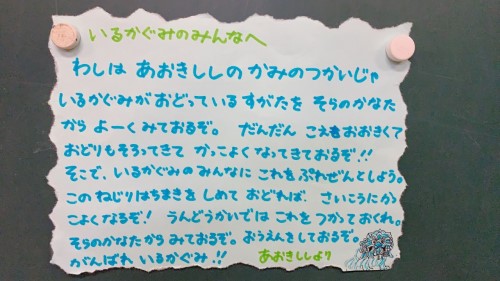 いるかぐみのみんなへ
わしは あおきししの かみのつかいじゃ
いるかぐみが おどっている すがたを そらのかなた
から よーく みておるぞ。 だんだん こえもおおきくて
おどりもそろってきて かっこよく なってきておるぞ!!
そこで、いるかぐみの みんなに これを ぷれぜんとしよう。
この ねじりはちまきを しめて おどれば、さいこうにか
こよくなるぞ! うんどうかいでは これを つかっておくれ。
そらのかなたから みておるぞ。おうえんをしておるぞ。
がんばれ いるかぐみ!! あおきししより